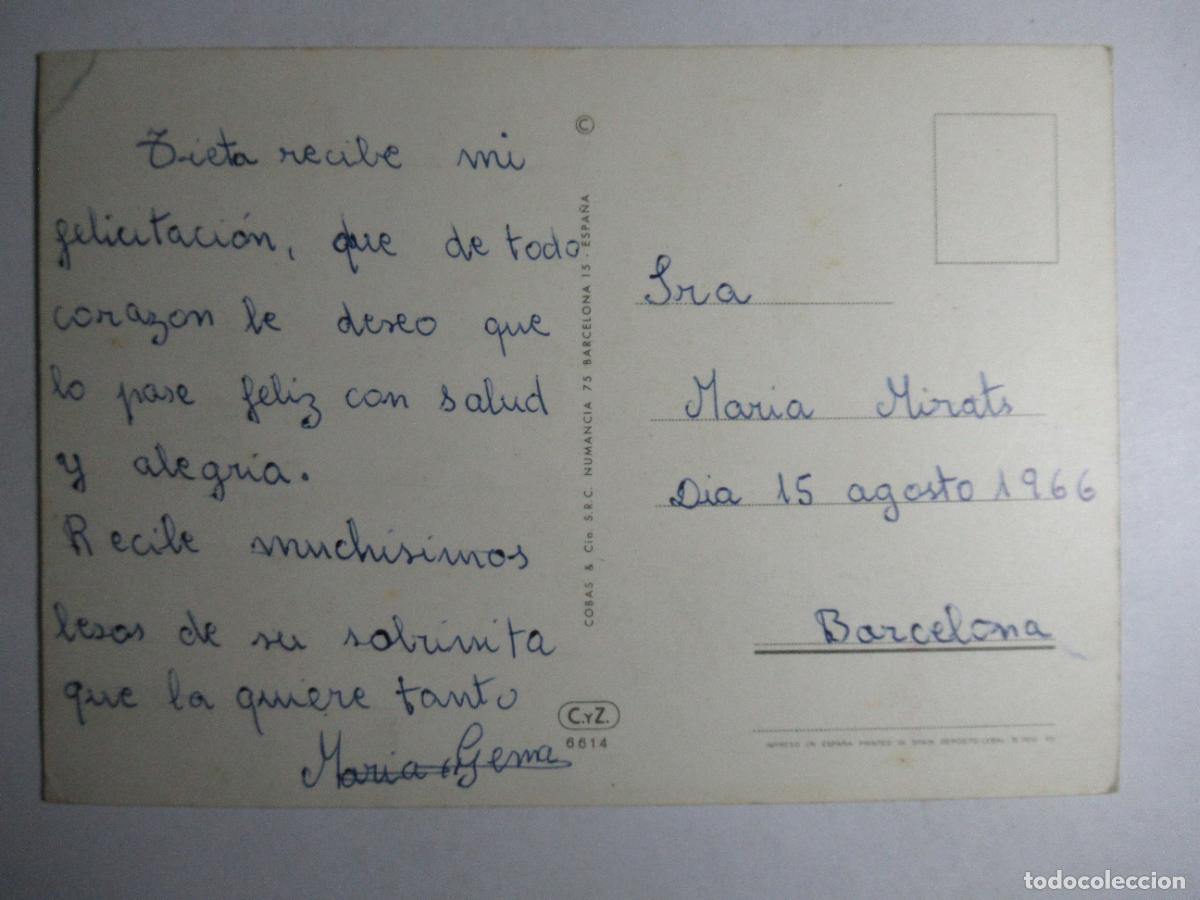 Tieta recibe mi
felicitación, que de todo
corazon le deseo que
lo pase feliz con salud
y alegria.
Recibe muchisimos
besos de su sobrinita
que la quiere tanto
Maria Gema
©
COBAS & Cia. S.R.C. NUMANCIA 75 BARCELONA 15 - ESPAÑA
C.Y Z.
6614
Sra
Maria Mirats
Dia 15 agosto 1966
Barcelona
IMPRESO EN ESPAÑA PRINTED IN SPAIN DEPOSITO LEGAL
todocoleccion